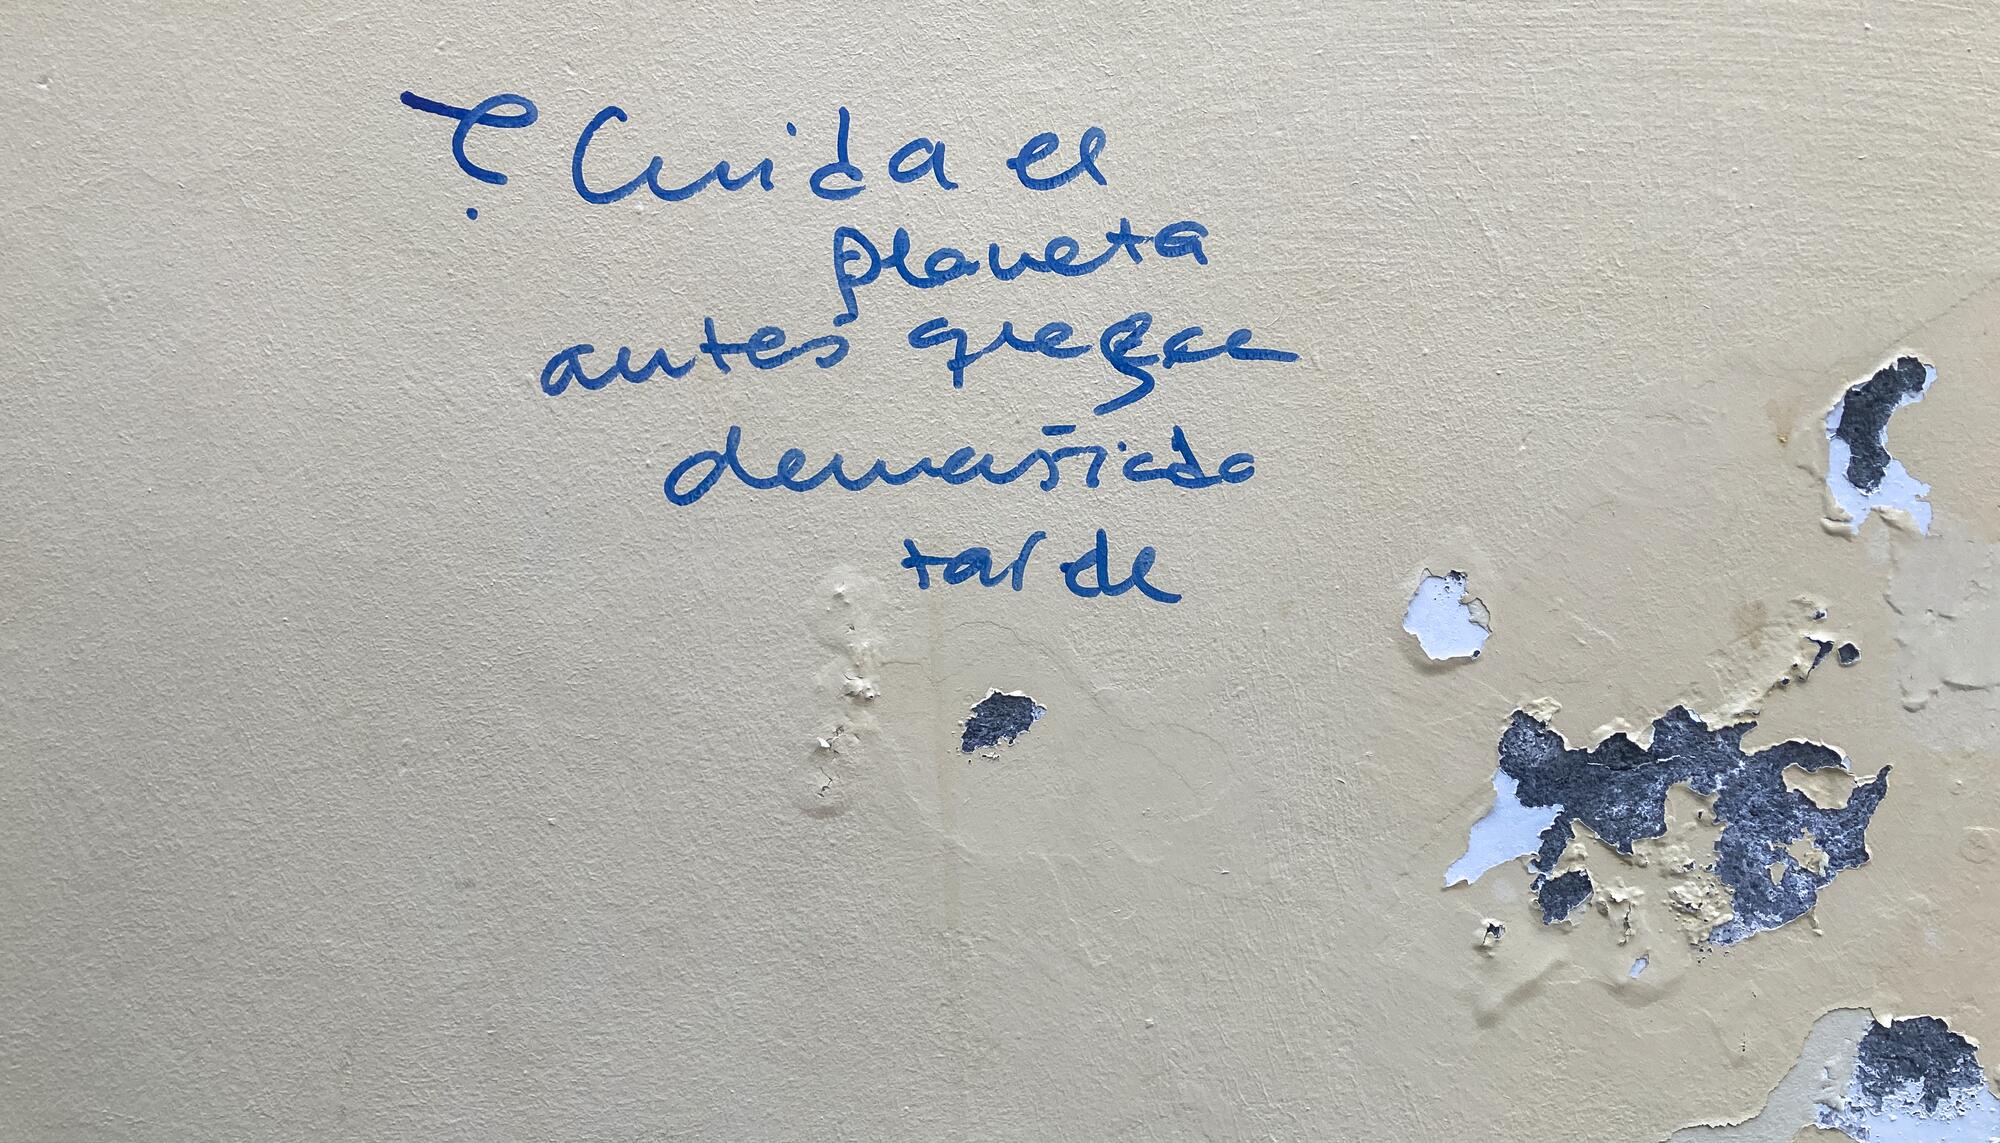 Cuida el
planeta
antes que sea
demasiado
tarde